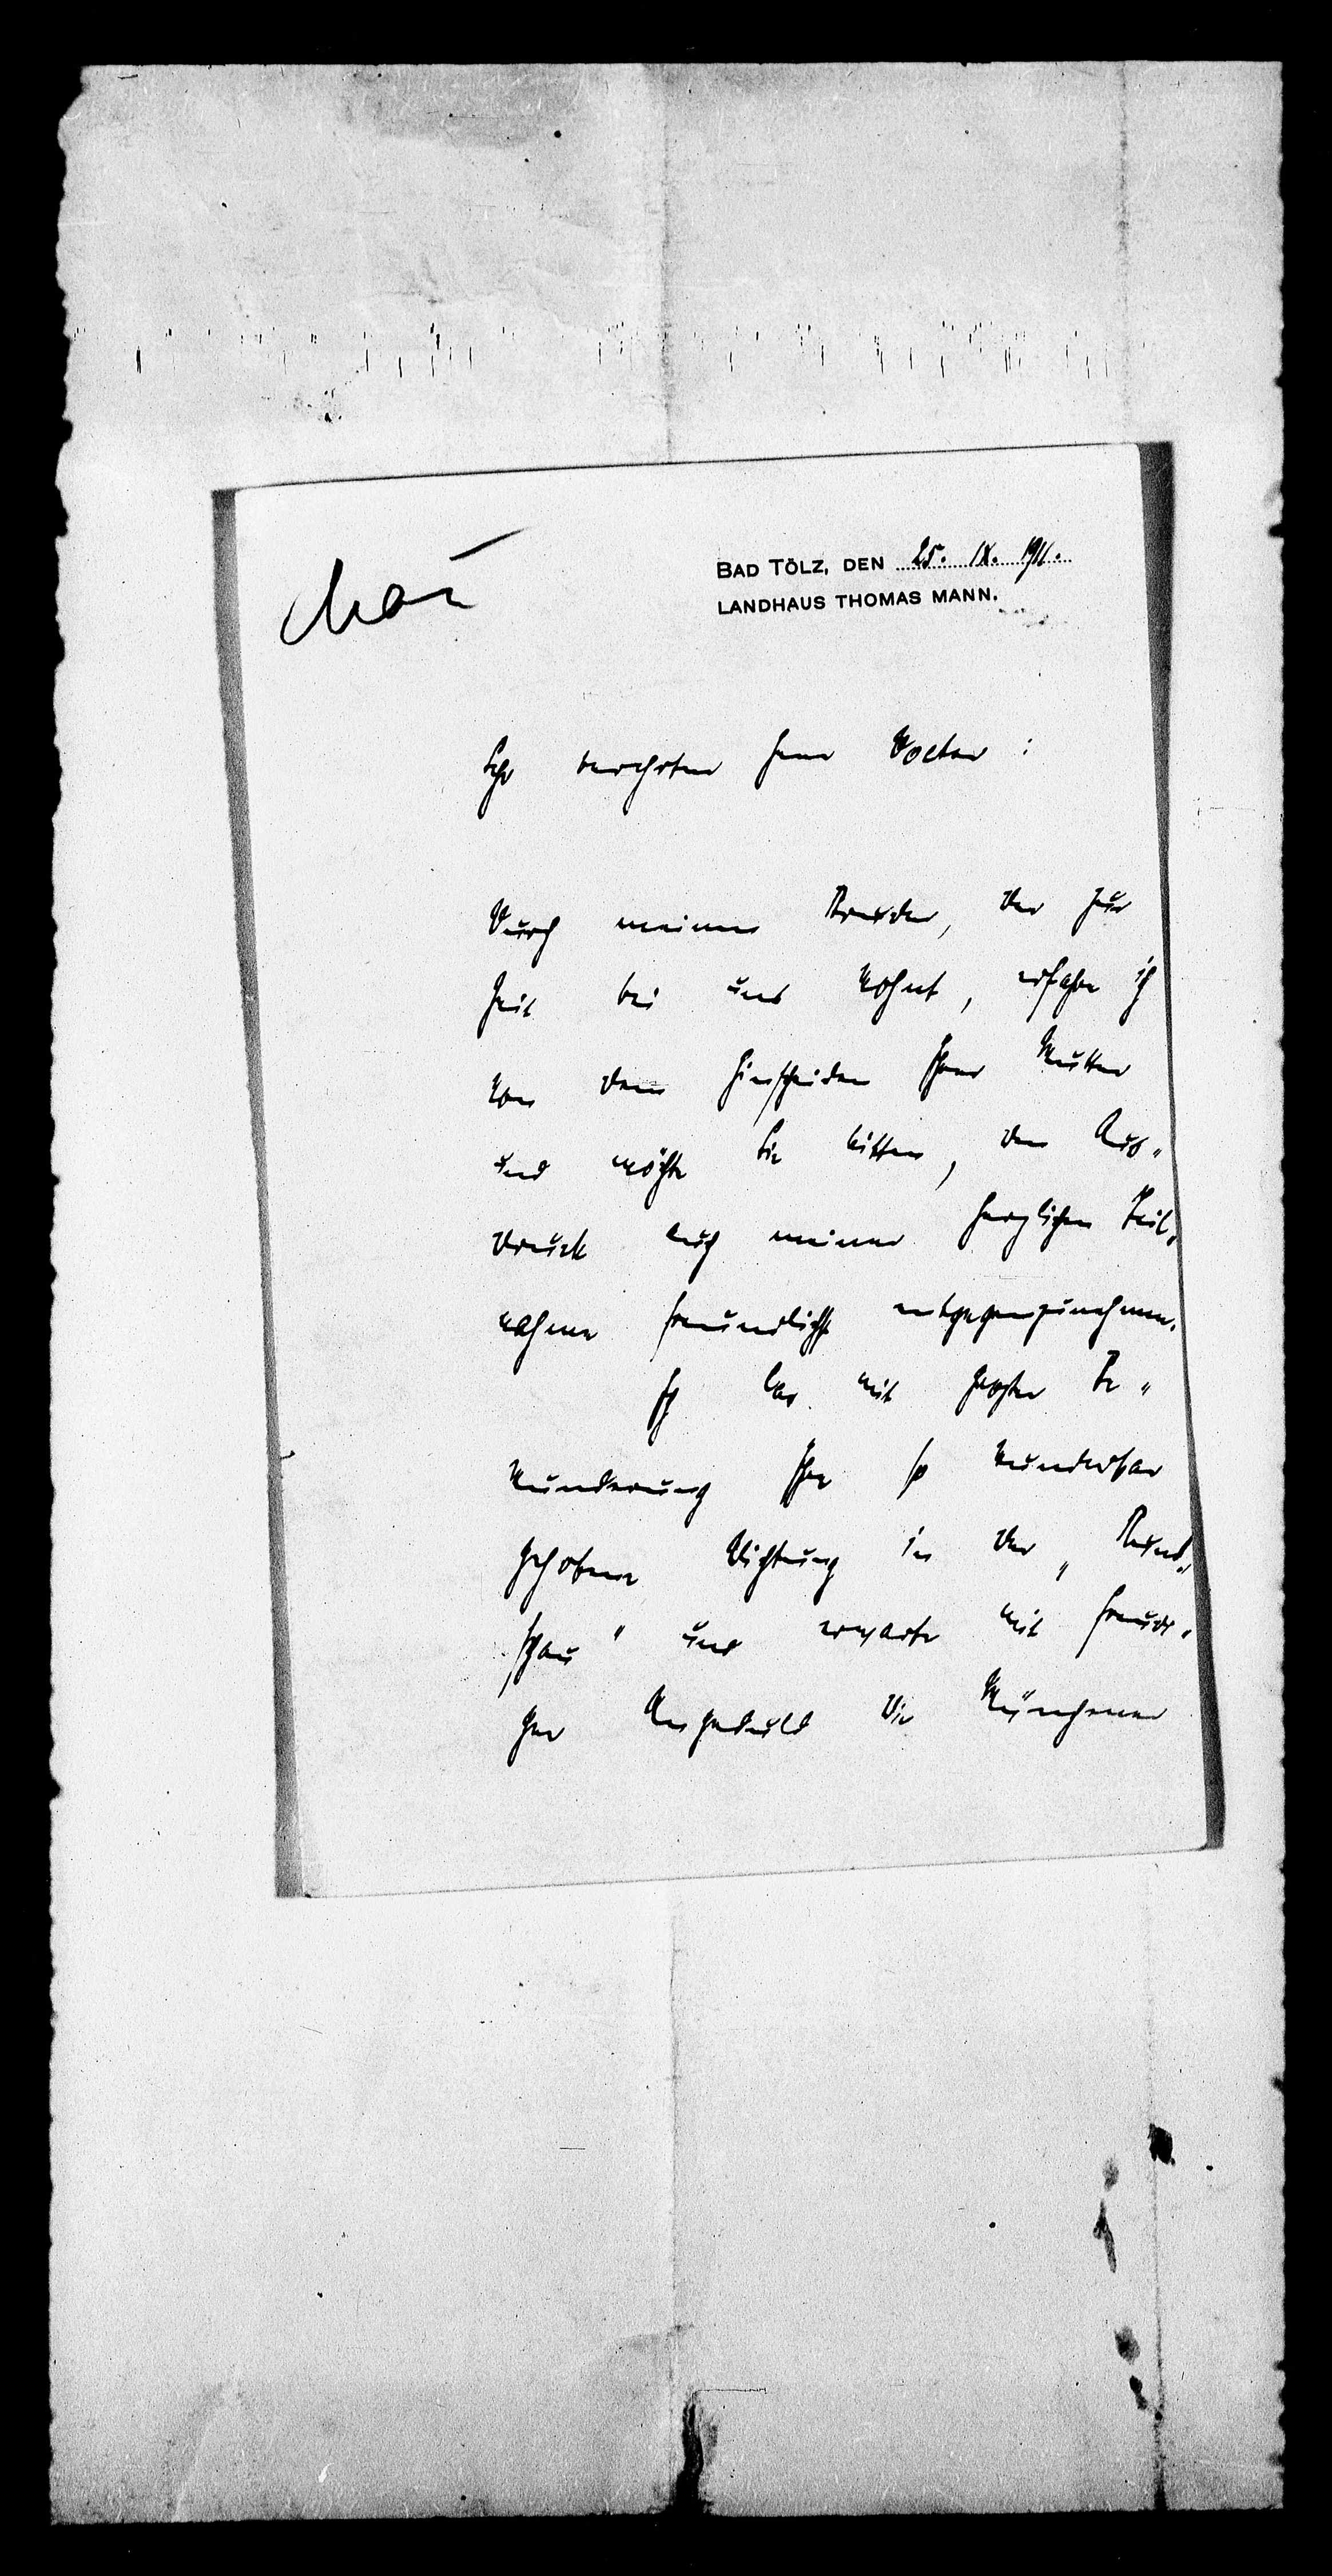 BAD TÖLZ, DEN 25. IX. 1911.
LANDHAUS THOMAS MANN.
Sehr verehrter Herr Doctor:
Durch meinen Bruder, der zur
Zeit bei uns wohnt, erfahre ich
von dem Hinscheiden Ihrer Mutter
und möchte Sie bitten, den Aus-
druck auch meiner herzlichen Teil-
nahme freundlichst entgegenzunehmen.
Ich las mit großer Be-
wunderung Ihre so wunderbar
gehobene Dichtung in der „Rund-
schau" und erwarte mit freudi-
ger Ungeduld die Münchener